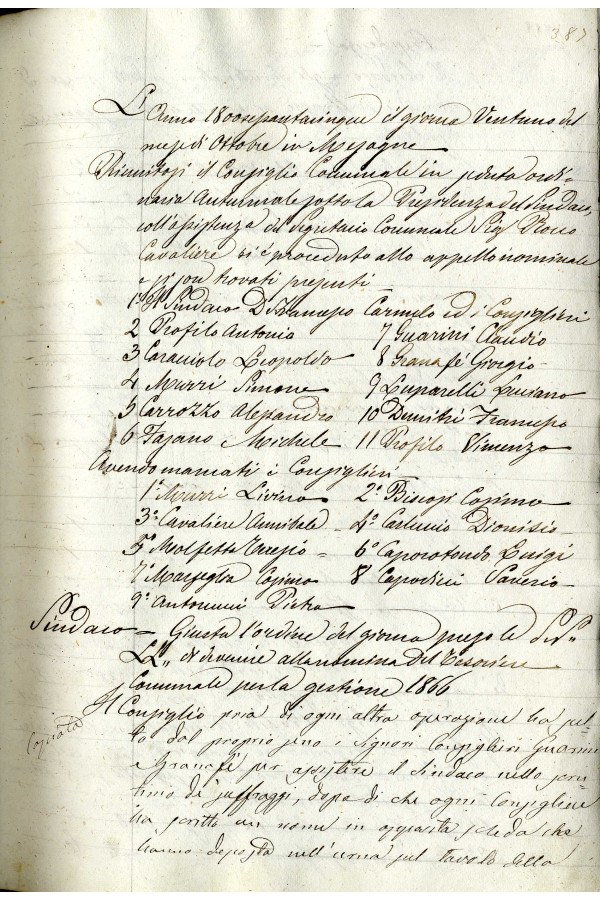 387
L'Anno 1800sessantacinque il giorno Ventuno del
mese di Ottobre in Mesagne
Riunitosi il Consiglio Comunale in seduta ordi-
naria Autunnale sotto la Presidenza del Sindaco,
coll'assistenza del Segretario Comunale Sig.r Rocco
Cavaliere si è proceduto allo appello nominale
e si son trovati presenti
1° Il Sindaco D. Francesco Carmelo ed i Consiglieri
2 Profilo Antonio 7 Guarini Claudio
3 Caraciolo Leopoldo 8 Granafé Giorgio
4 Murri Simone 9 Luparelli Luciano
5 Carrozzo Alesandro 10 Dimitri Francesco
6 Fajano Michele 11 Profilo Vincenzo
Avendo mancati i Consiglieri
1° Murri Livino 2° Biscosi Cosimo
3° Cavaliere Annibale 4° Carluccio Dionisio
5° Molfetta 6° Caporotondo Luigi
7° Marseglia Cosimo 8° Capodieci Saverio
9° Antonucci Pietro
Sindaco = Giusta l'ordine del giorno prego le
LL" di devenire alla nomina del Tesoriere
Comunale per la gestione 1866
Il Consiglio pria di ogni altra operazione ha scel-
to dal proprio seno i Signori Consiglieri Guarini
e Granafé per assistere il Sindaco nello scru-
tinio de' suffraggi, dopo di che ogni Consigliere
ha scritto un nome in apposita scheda che
hanno deposta nell'urna sul tavolo della
Copiata